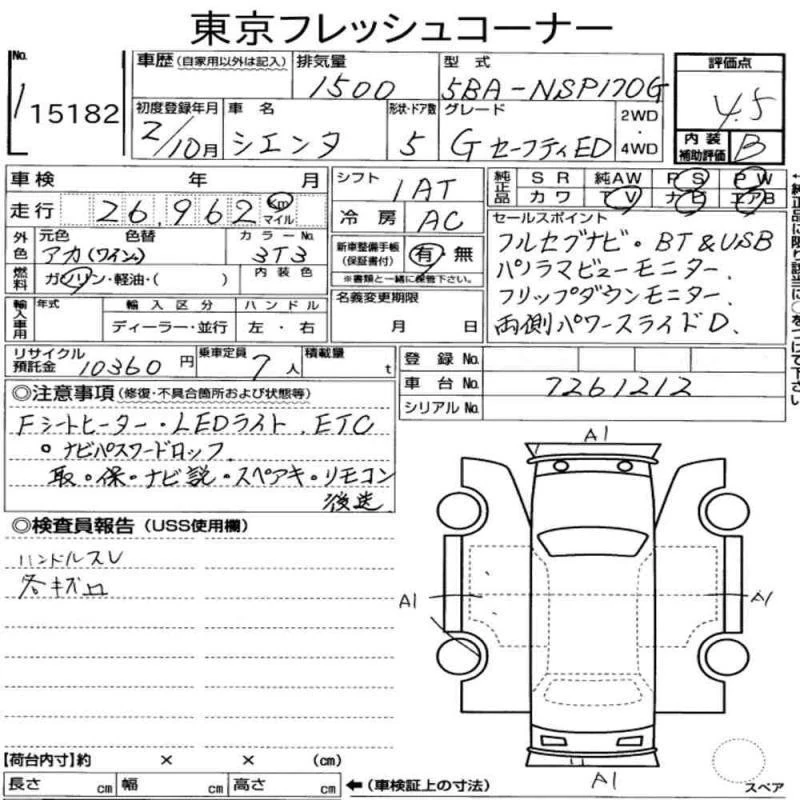 東京フレッシュコーナー
No. 15182
車歴 (自家用以外は記入) 排気量 1500 型式 5BA-NSP170G
初度登録年月 2/10月 車名 シエンタ 形状・ドア数 5 グレード G セーフティED 2WD・4WD
評価点 4.5
内装補助評価 B
車検 年 月
走行 26,962 Km マイル
外色 元色 アカ(ワイン) 色替 カラーNo. 3T3
燃料 ガソリン・軽油・( ) 内装色
輸入車用 年式 輸入区分 ディーラー・並行 ハンドル 左・右
シフト IAT
冷房 AC
新車整備手帳(保証書付) 有・無
※書類と一緒に保管下さい。
名義変更期限 月 日
純正品 SR 純AW PS PW
カワ TV ナビ エアB
セールスポイント
フルセグナビ・BT&USB
パノラマビューモニター、
フリップダウンモニター、
両側パワースライドD、
リサイクル預託金 10360円 乗車定員 7人 積載量 t
登録No.
車台No. 7261212
シリアルNo.
◎注意事項(修復・不具合箇所および状態等)
Fシートヒーター・LEDライト、ETC
・ナビパスワードロック
取・保・ナビ説・スペアキ・リモコン
後送
◎検査員報告(USS使用欄)
ハンドルスレ
各キズ凹
A1
A1
A1
A1
【荷台内寸】約 × × (cm)
長さ cm 幅 cm 高さ cm ←(車検証上の寸法)
スペア